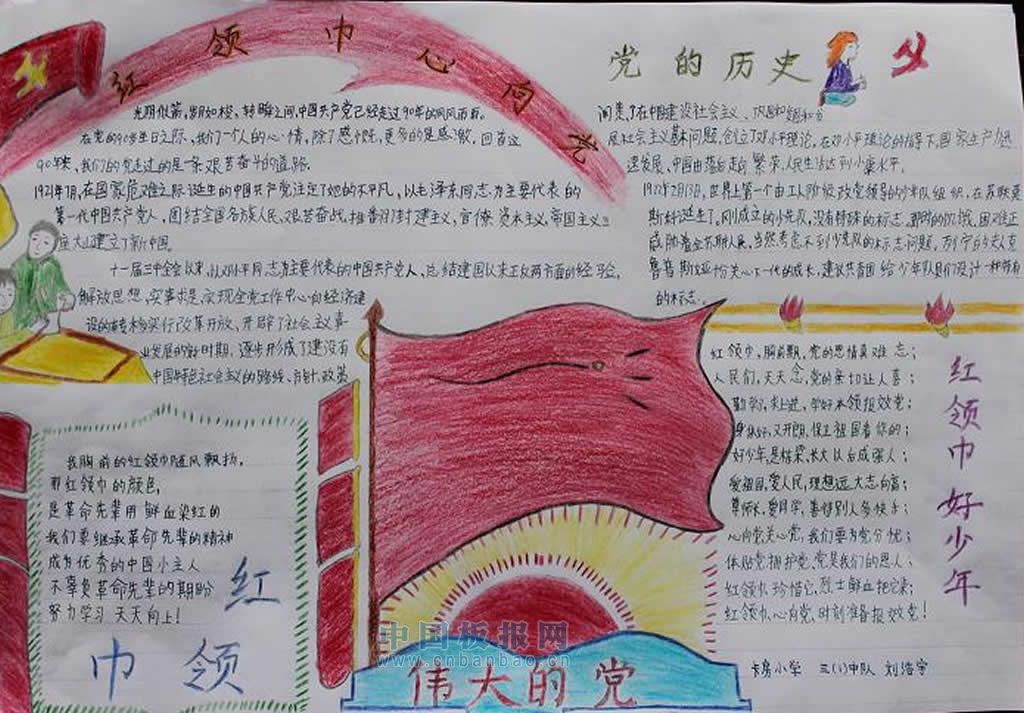 红领巾心向党
光阴似箭,岁月如梭,转瞬之间,中国共产党已经走过90年的风风雨雨。
在党的90岁生日之际,我们一个人的心情,除了感慨,更多的是感激,回首这
90年来,我们的党走过的是一条艰苦奋斗的道路.
1921年7月,在国家危难之际诞生的中国共产党注定了她的不平凡,以毛泽东同志为主要代表的
第一代中国共产党人,团结全国各族人民、艰苦奋战,推番了封建主义,官僚资本主义,帝国主义三
座大山建立了新中国.
十一届三中全会以来,以邓小平同志为主要代表的中国共产党人,总结建国以来正反两方面的经验,
解放思想,实事求是,实现全党工作中心向经济建
设的转移实行改革开放,开辟了社会主义事
业发展的新时期,逐步形成了建设有
中国特色社会主义的路线、方针、政策
党的历史
阐责了在中国建设社会主义、巩固和
展社会主义基本问题,创立了邓小平理论,在邓小平理论的指导下,国家生产力迅
速发展,中国由落后走向繁荣,人民生活达到小康水平.
1922年2月13日,世界上第一个由工人阶级政党领导的少年队组织,在苏联莫
斯科诞生了,刚成立的少先队,没有特殊的标志,那时的饥饿,困难正
威胁着全苏联人民,当然考虑不到少先队的标志问题,列宁的夫人克
鲁普斯卡亚十分关心下一代的成长,建议共青团给少年队员们设计一种带有
的标志.
我胸前的红领巾随风飘扬,
那红领巾的颜色,
是革命先辈用鲜血染红的
我们要继承革命先辈的精神
成为优秀的中国小主人
不辜负革命先辈的期盼
努力学习 天天向上!
红
领
巾
红领巾,胸前飘,党的恩情莫难忘;
人民们,天天念,党的亲切让人喜;
勤学习,求上进,学好本领报效党;
身体好,又开朗,保卫祖国看你的;
好少年,是栋梁,长大以后成强人;
爱祖国,爱人民,理想远大志向高;
尊师长,爱同学,善待别人多快乐;
心向党,关心党,我们要为党分忧;
体贴党,拥护党,党是我们的恩人;
红领巾,珍惜它,烈士鲜血把它染;
红领巾,心向党,时刻准备报效党!
红领巾 好少年
伟大的党
卡房小学 三(1)中队 刘浩宇
中国板报网
www.cnbanbao.cn